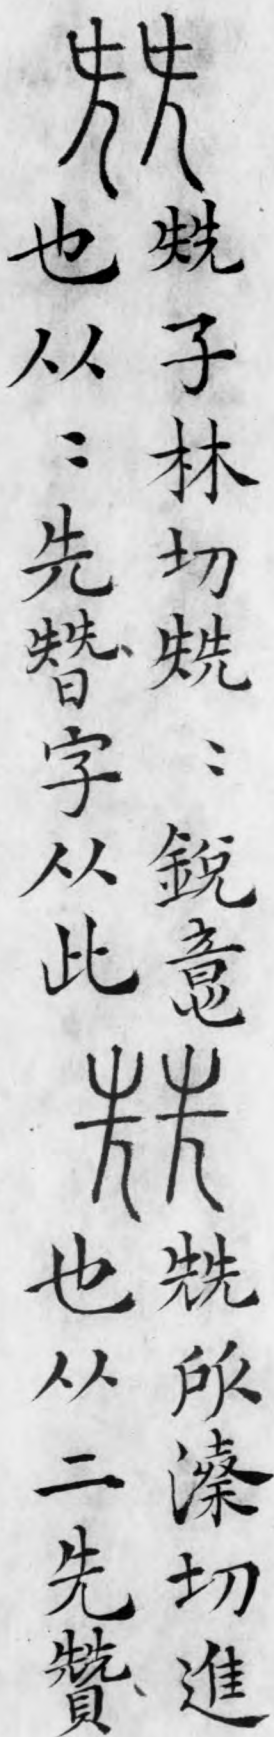 兓兓子林切兓〻銳意
也从〻先朁字从此
兟兟所溱切進
也从二先贊